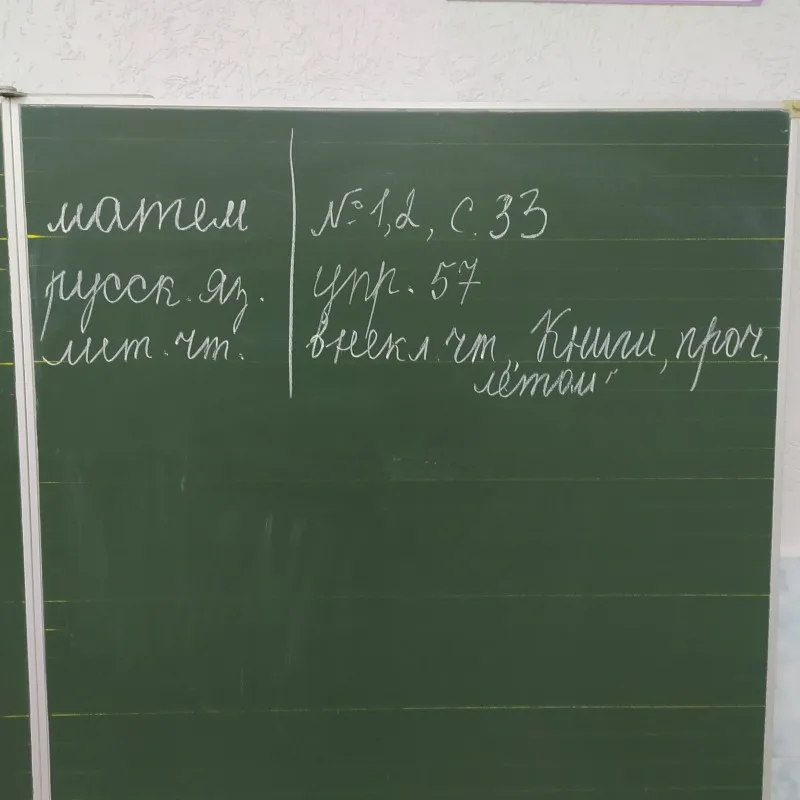 матем | № 1,2, с. 33
русск. яз. | упр. 57
лит. чт. | внекл. чт. „Книги, проч.
летом"